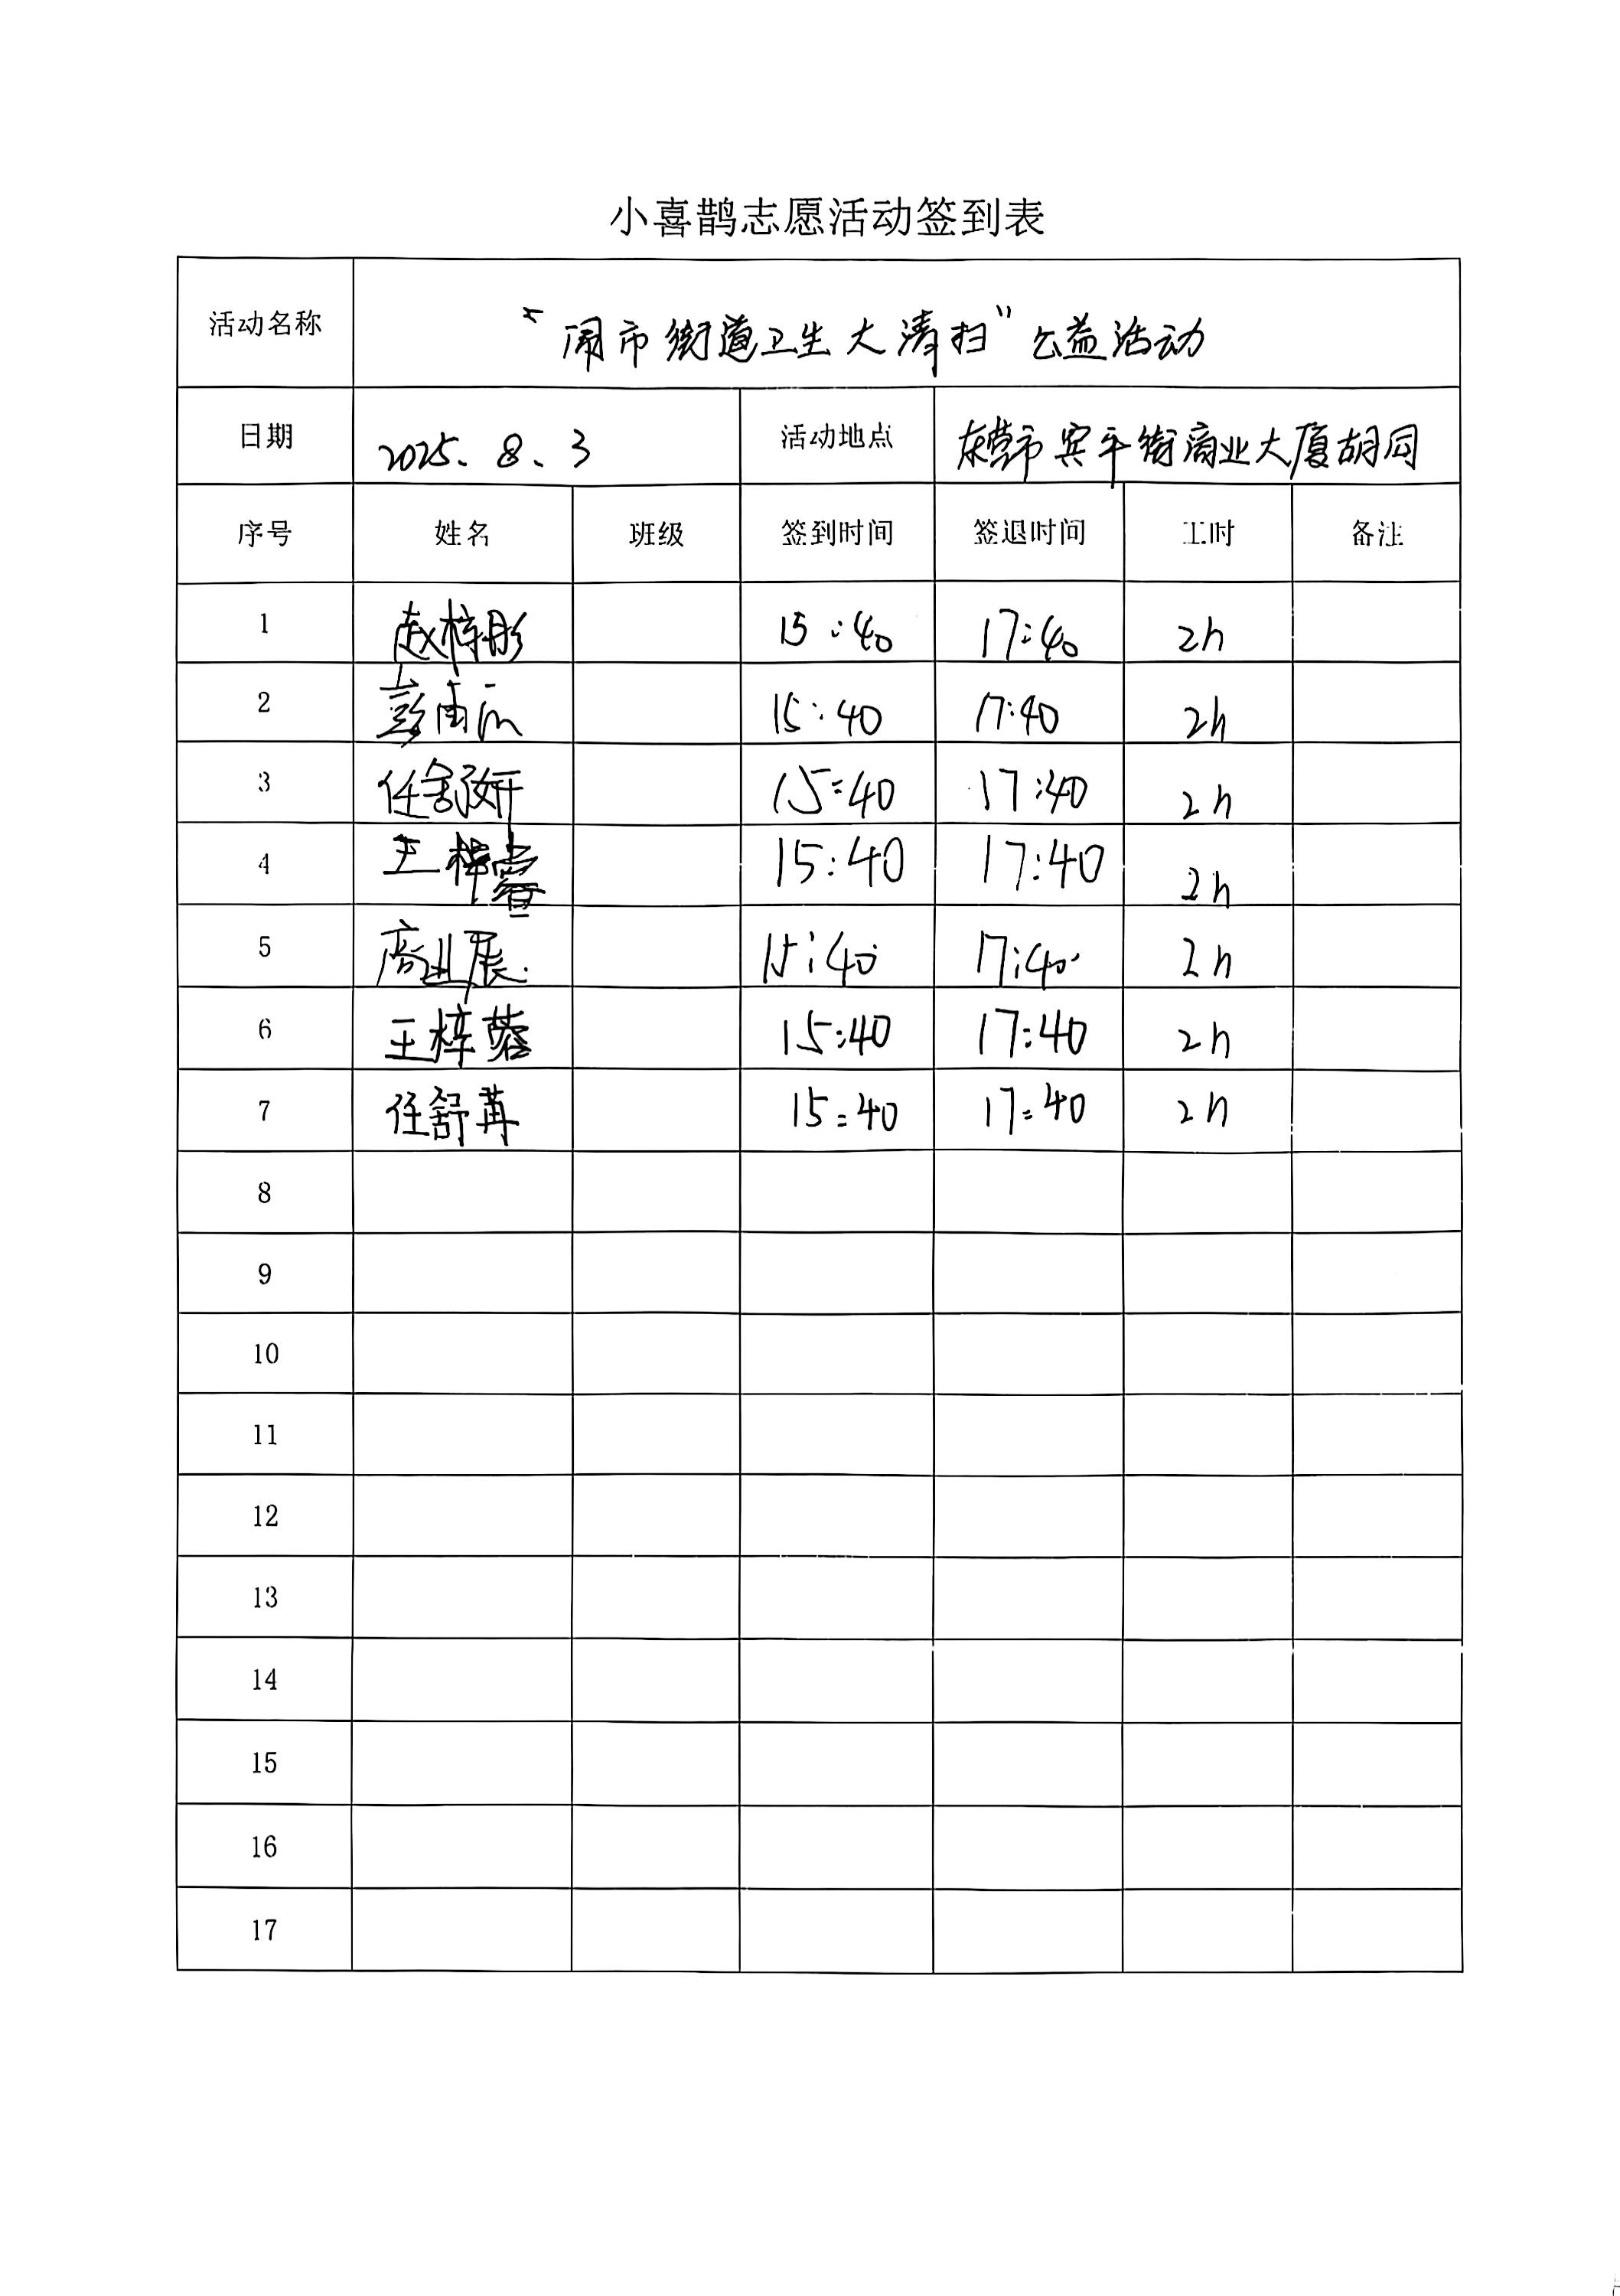 小喜鹊志愿活动签到表
活动名称 “闹市街道卫生大清扫”公益活动
日期 2025.8.3 活动地点 东营市宾平街商业大厦胡同
序号 姓名 班级 签到时间 签退时间 工时 备注
1 赵梓彤 15:40 17:40 2h
2 彭雨 15:40 17:40 2h
3 任舒妍 15:40 17:40 2h
4 王梓睿 15:40 17:40 2h
5 商业展 15:40 17:40 2h
6 王梓蓉 15:40 17:40 2h
7 任舒苒 15:40 17:40 2h
8
9
10
11
12
13
14
15
16
17